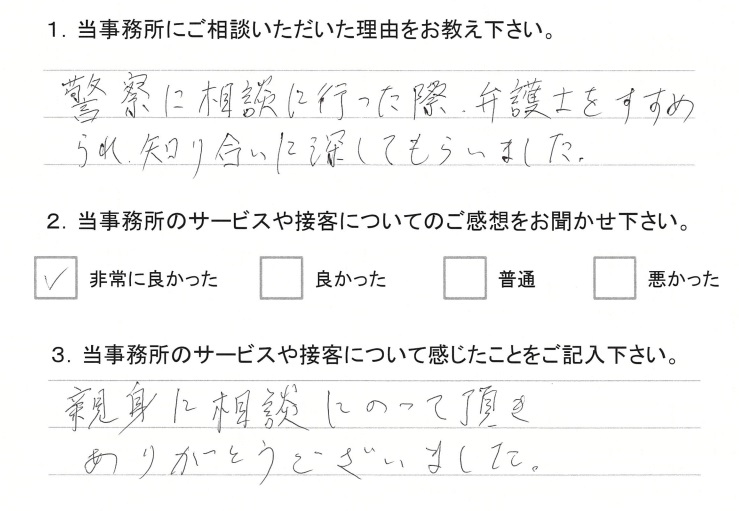 1. 当事務所にご相談いただいた理由をお教え下さい。
警察に相談に行った際、弁護士をすすめ
られ、知り合いに深してもらいました。
2. 当事務所のサービスや接客についてのご感想をお聞かせ下さい。
✓ 非常に良かった 良かった 普通 悪かった
3. 当事務所のサービスや接客について感じたことをご記入下さい。
親身に相談にのって頂き
ありがとうございました。